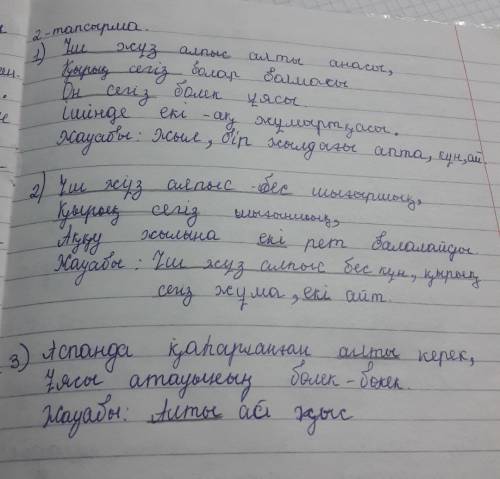 2-тапсырма.
1) Үш жүз алпыс алты анасы,
Қырық сегіз болар баласы
Он сегіз бөлек ұясы
Ішінде екі-ақ жұмыртқасы.
Жауабы: жыл, бір жылдағы апта, күн, ай
2) Үш жүз алпыс бес шығыршық,
Қырық сегіз
Аққу жылына екі рет балалайды
Жауабы: Үш жүз алпыс бес күн, қырық
сегіз жұма, екі айт.
3) Аспанда қаһарланған алты керек,
Ұясы атауының бөлек-бөлек.
Жауабы: Алты ай қыс